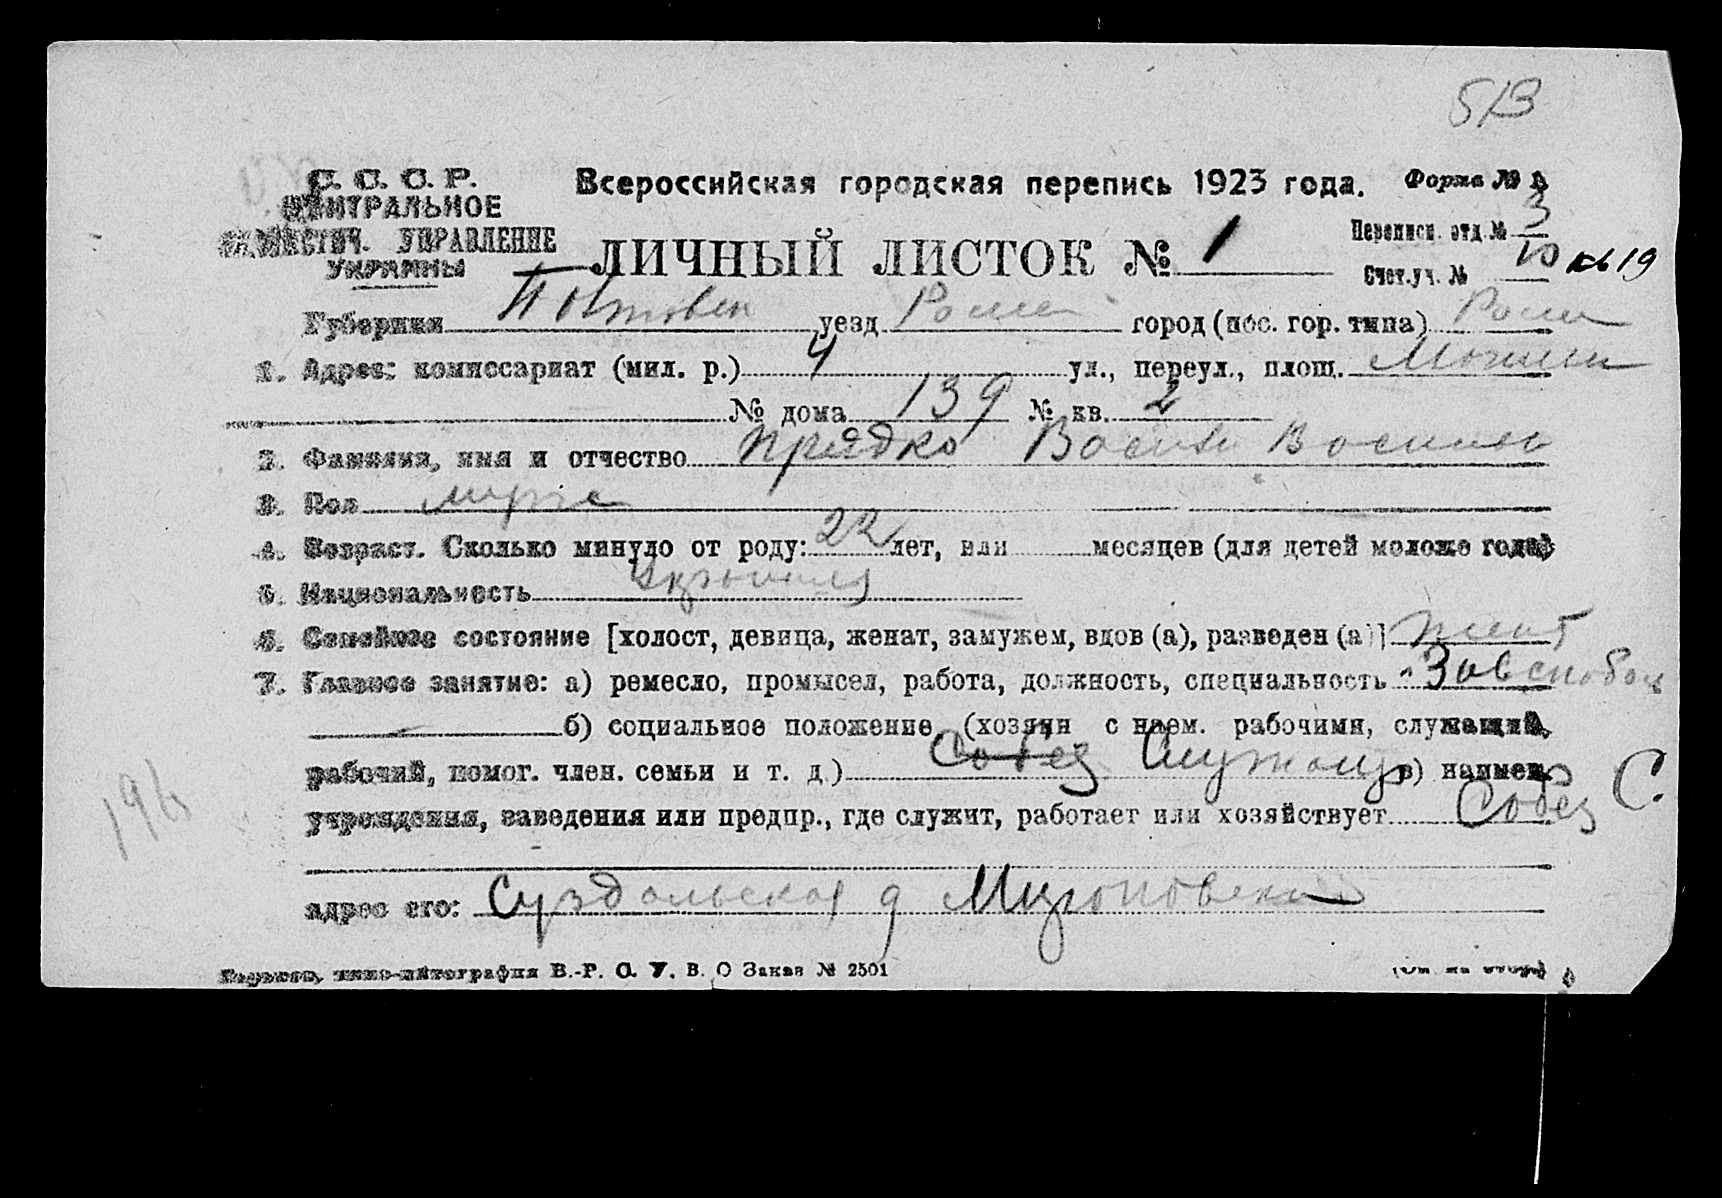 513
С. С. С. Р.
ЦЕНТРАЛЬНОЕ
СТАТИСТИЧ. УПРАВЛЕНИЕ
УКРАИНЫ
Всероссийская городская перепись 1923 года.
Форма № 1
ЛИЧНЫЙ ЛИСТОК № 1
Переписн. отд. № 3
Счет. уч. № 10 кв 19
Губерния Полтавск уезд Ромен город (пос. гор. типа) Ромн
1. Адрес: комиссариат (мил. р.) 4 ул., переул., площ.
№ дома 139 № кв. 2
2. Фамилия, имя и отчество Прядко Василь Василь
3. Пол мужс
4. Возраст. Сколько минуло от роду: 22 лет, или месяцев (для детей моложе года)
5. Национальность
6. Семейное состояние [холост, девица, женат, замужем, вдов (а), разведен (а)] женат
7. Главное занятие: а) ремесло, промысел, работа, должность, специальность
б) социальное положение (хозяин с наем. рабочими, служащий,
рабочий, помог. член. семьи и т. д.) Собез Служащ в) наимен.
учреждения, заведения или предпр., где служит, работает или хозяйствует Собез С.
196
адрес его: Суздальская д
типо-литография В.-Р. С. У. В. О Заказ № 2501